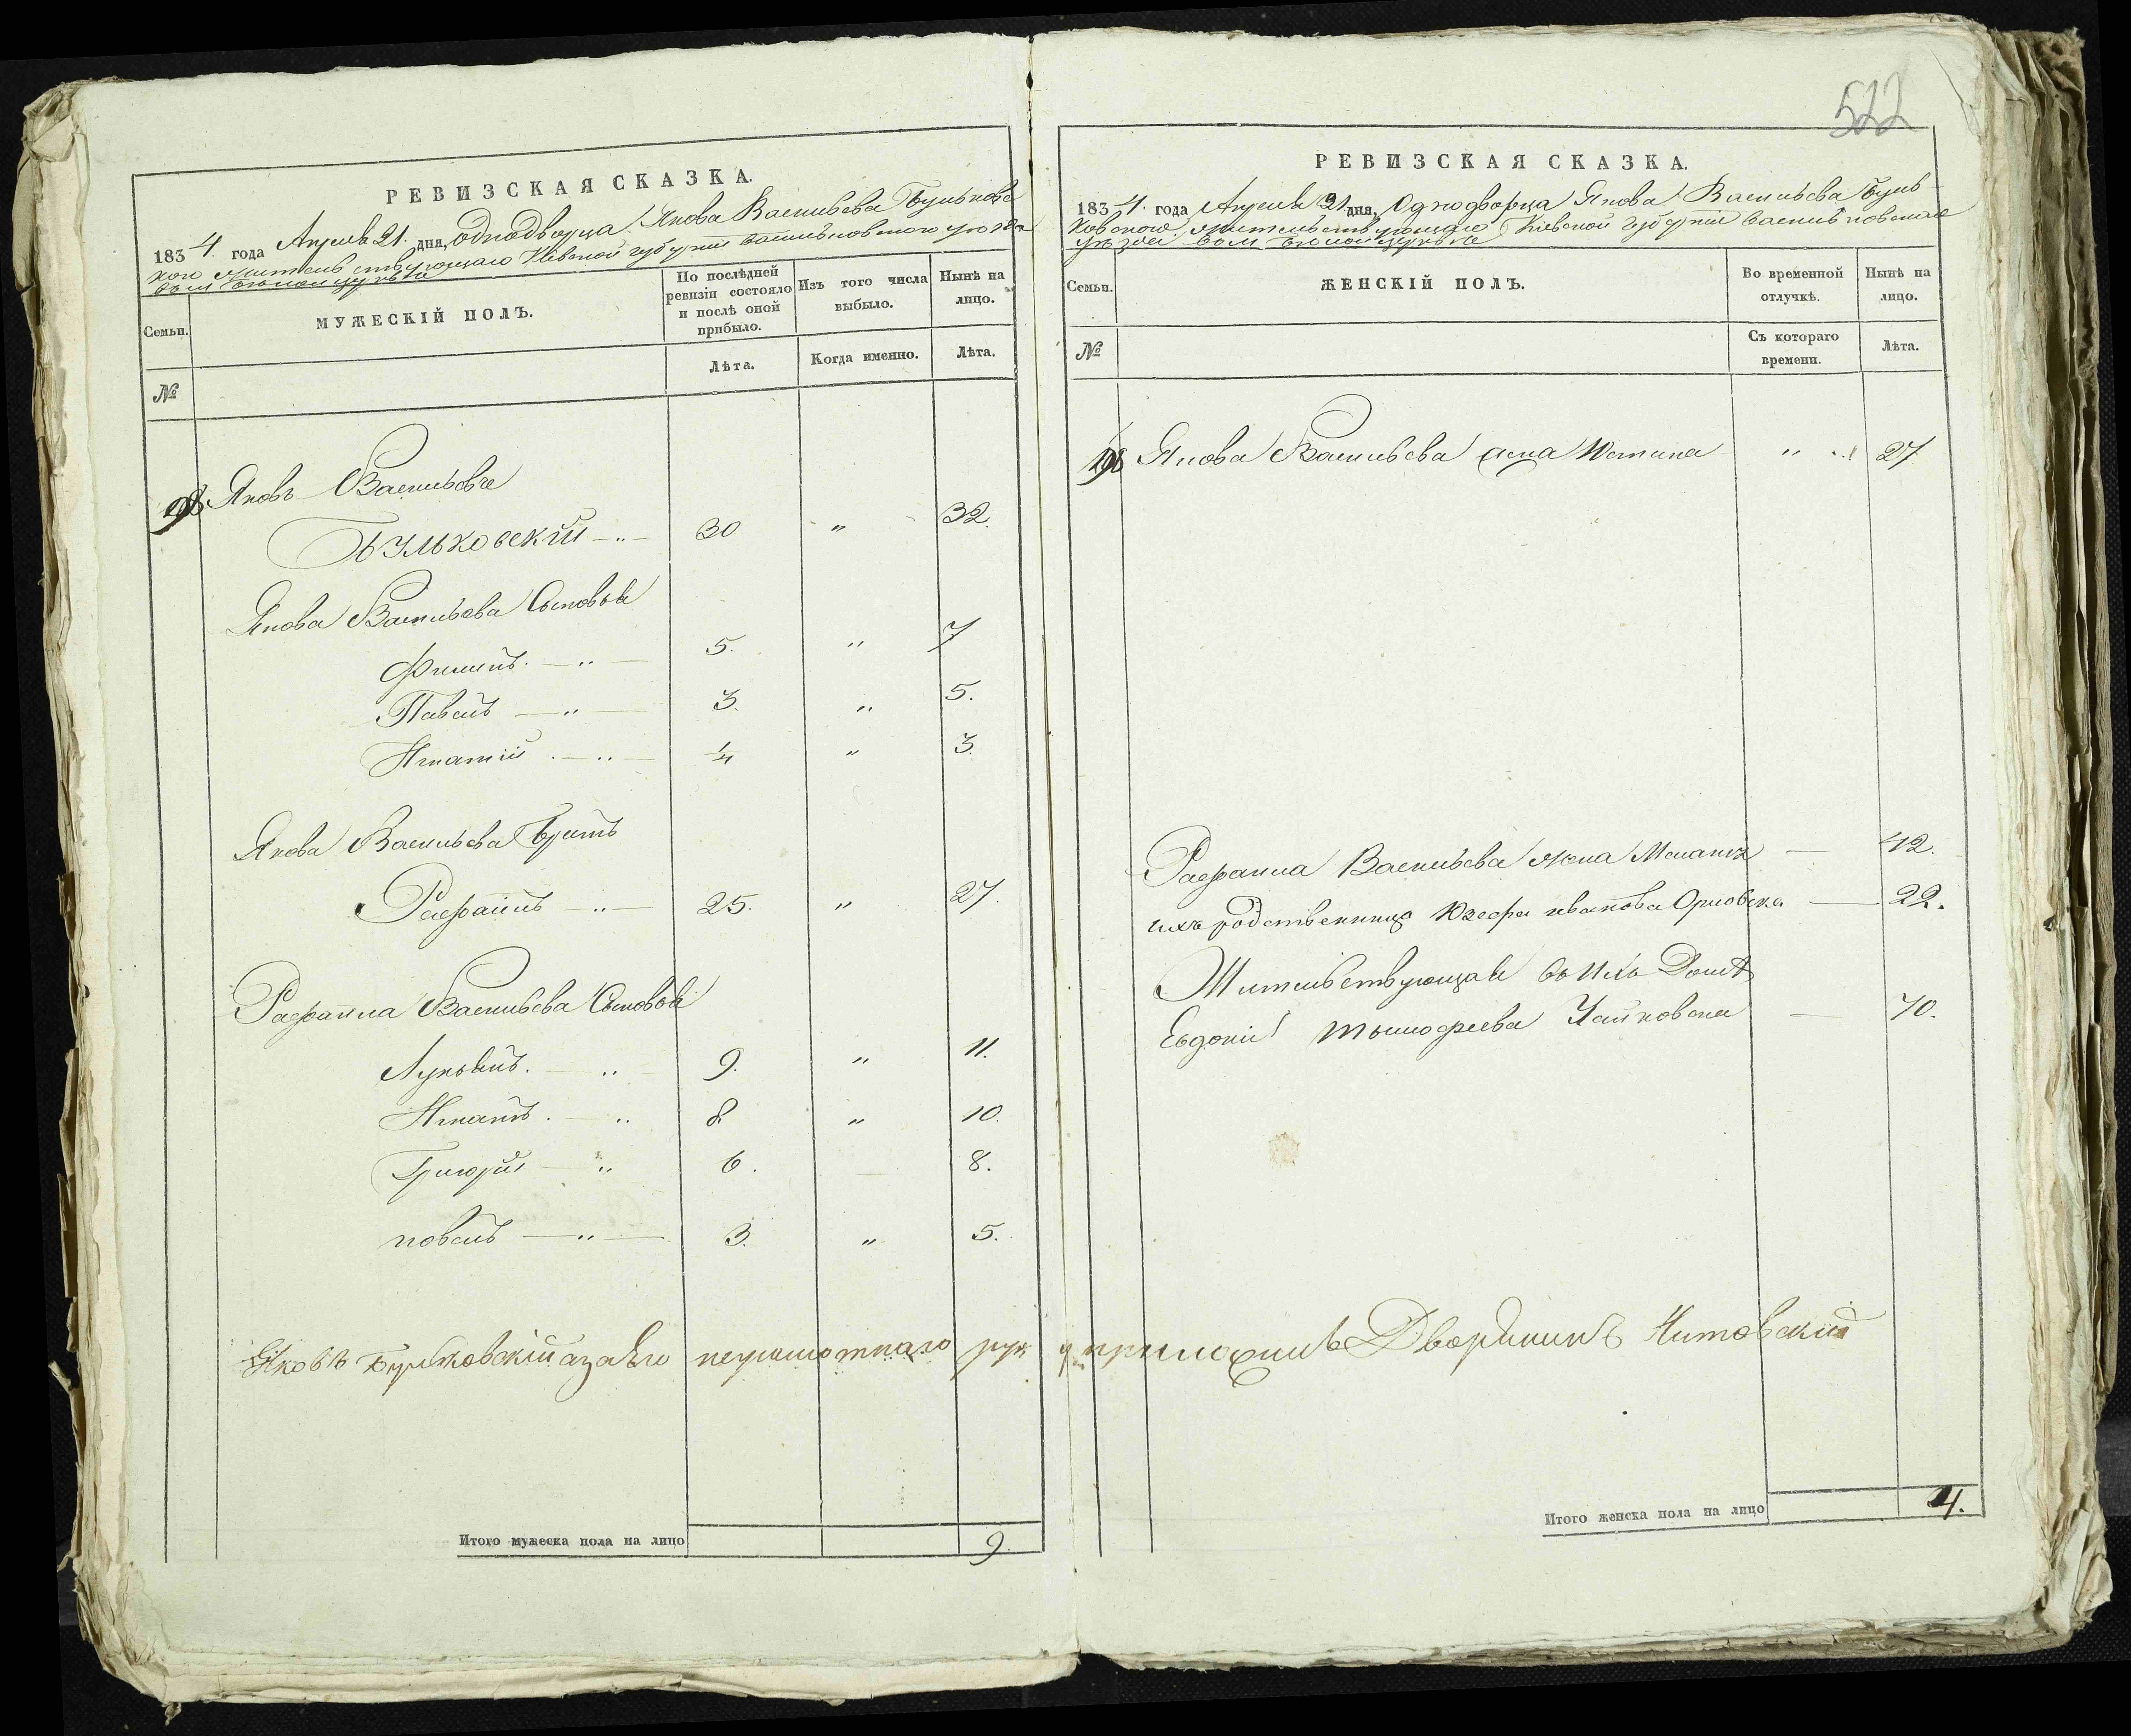 522
РЕВИЗСКАЯ СКАЗКА.
1834. года Апреля 21. дня, однодворца Якова Васильева Бульковс
кого жительствующаго Киевской губернии Васильковского уезда
въ м Белой церкви
Семьи.
МУЖЕСКІЙ ПОЛЪ.
По послѣдней ревизіи состояло и послѣ оной прибыло.
Изъ того числа выбыло.
Нынѣ на лицо.
№
Лѣта.
Когда именно.
Лѣта.
198 Яковъ Васильевъ
Бульковскій — " — 30 " 32.
Якова Васильева Сыновья
Филипъ. — " — 5. " 7
Павелъ — " — 3. " 5.
Игнатій . — " — 1/4 " 3.
Якова Васильева Братъ
Рафаилъ — " — 25. " 27.
Рафаила Васильева Сыновья
Лукьянъ. — " 9. " 11.
Игнатъ. — " 8 " 10.
Григорій — " 6. 8.
повелъ — " — 3. " 5.
Яковъ Бульковскій азаѣго неграмотнаго руку приложилъ Дворянинъ Нитовский
Итого мужеска пола на лицо 9.
РЕВИЗСКАЯ СКАЗКА.
1834. года Апреля 21 дня, Однодворца Якова Васильева Буль
ковского, жительствующаго Кіевской губерніи Васильковскаго
уезда въ м Белой церкве
Семьи.
ЖЕНСКІЙ ПОЛЪ.
Во временной отлучкѣ.
Нынѣ на лицо.
№
Съ котораго времени.
Лѣта.
198 Якова Васильева жена Юстина " " 27
Рафаила Васильева жена — 42.
ихъ родственница Юзефа иванова Орловска — 22.
Жительствующая въ ихъ Доме
Евдокия тымофеева Чайковска — 70.
Итого женска пола на лицо 4.